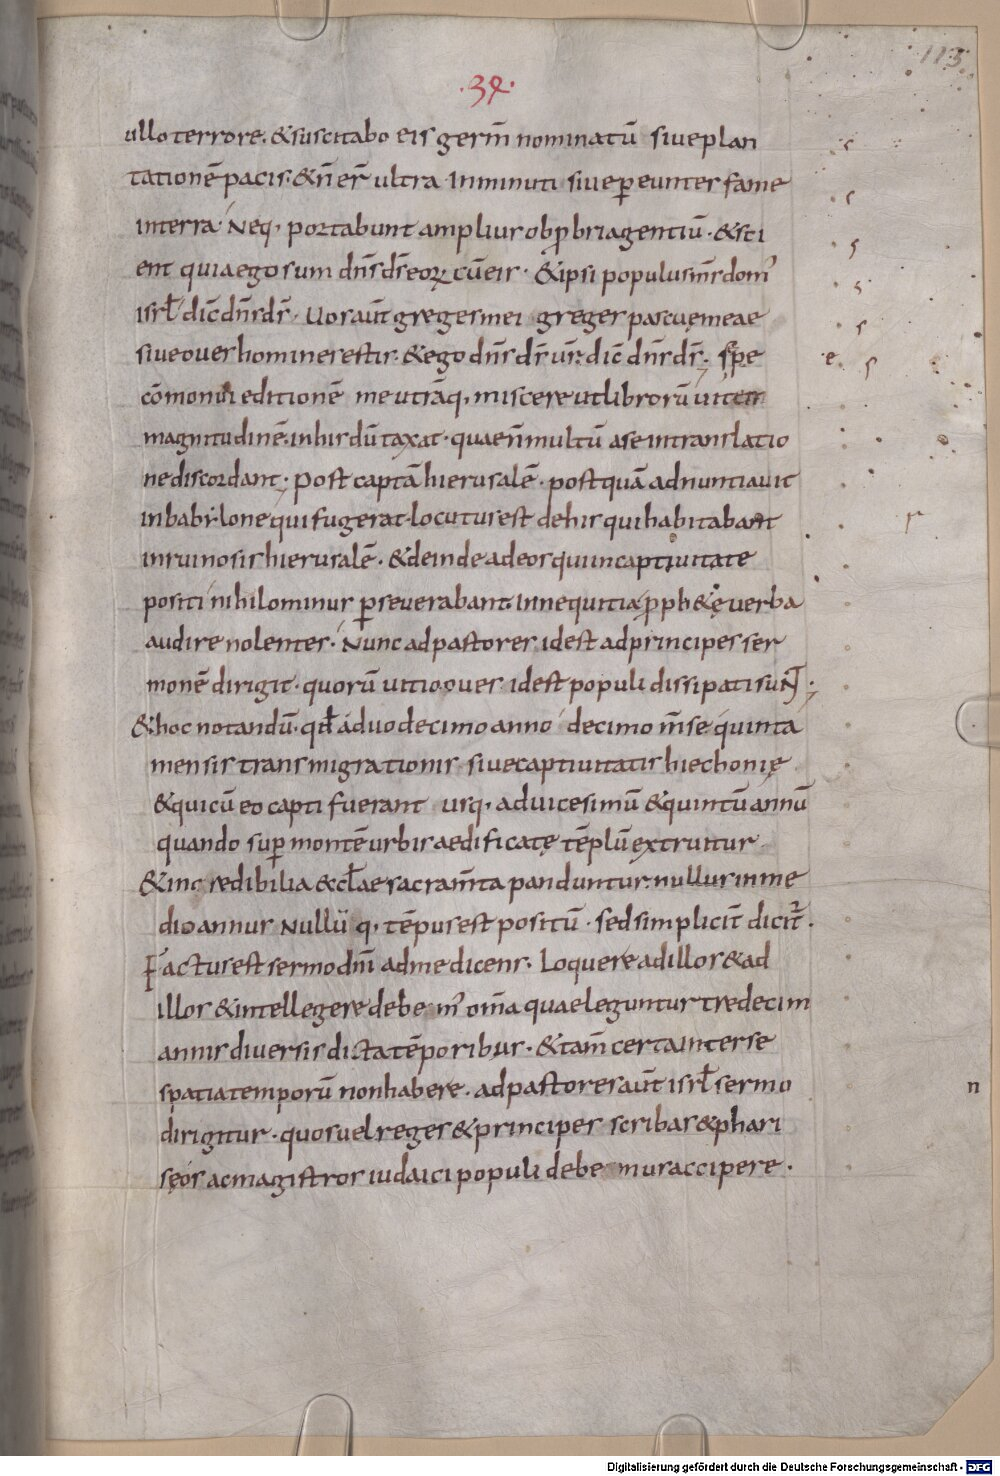 113
·34·
ullo terrore. & suscitabo eis germ̄ nominatū siue plan
tationē pacis. & n̄ er̄ ultra inminuti siue p̱ eunter fame
interra. Neq, portabunt amplius obp̱briagentiū. & sci
ent quia ego sum dn̄s ds̄ eoꝝ cū eis. & ipsi populus m̄s dom'
isrl̄ dic̄ dn̄s ds̄. Uos aūt greges mei greges pascuę meae
siue oues homines estis. & ego dn̄s ds̄ ur̄. dic̄ dn̄s ds̄. sp̱e
cōmonui editionē me utrāq, miscere ut librorū uitem
magnitudinē. inhis dūtaxat. quae n̄ multū ase intranslatio
ne discordant. Post captā hierusalē. postquā adnuntiauit
inbabẏlone qui fugerat. locutus est dehis qui habitabant
inruinosis hierusalē. & deinde ad eos qui incaptiuitate
positi nihilominus p̱seuerabant. innequitia p̱ph&ę uerba
audire nolentes. Nunc ad pastores idest ad principes ser
monē dirigit. quorū uitio oues idest populi dissipati suNT.
& hoc notandū. qd̄ áduodecimo anno decimo m̄se quinta
mensis transmigrationis siue captiuitatis hiechonię
& qui cū eo capti fuerant usq, aduicesimū & quintū annū
quando sup̱ montē urbis aedificatę tēplū extruitur
& incredibilia & cl̄ae sacram̄ta panduntur. nullus inme
dio annus Nullū q, tēpus est positū. sed simplicit̄ dicit̄.
Factus est sermo dn̄i adme dicens. Loquere adillos & ad
illos & intellegere debem' om̄a quae leguntur tredecim
annis diuersis dicta tēporibus. & tam̄ certa interse
spatia temporū nonhabere. ad pastores aūt isrl̄ sermo
n
dirigitur. quos uel reges & principes scribas & phari
sęos ac magistros iudaici populi debemus accipere.
Digitalisierung gefördert durch die Deutsche Forschungsgemeinschaft - DFG